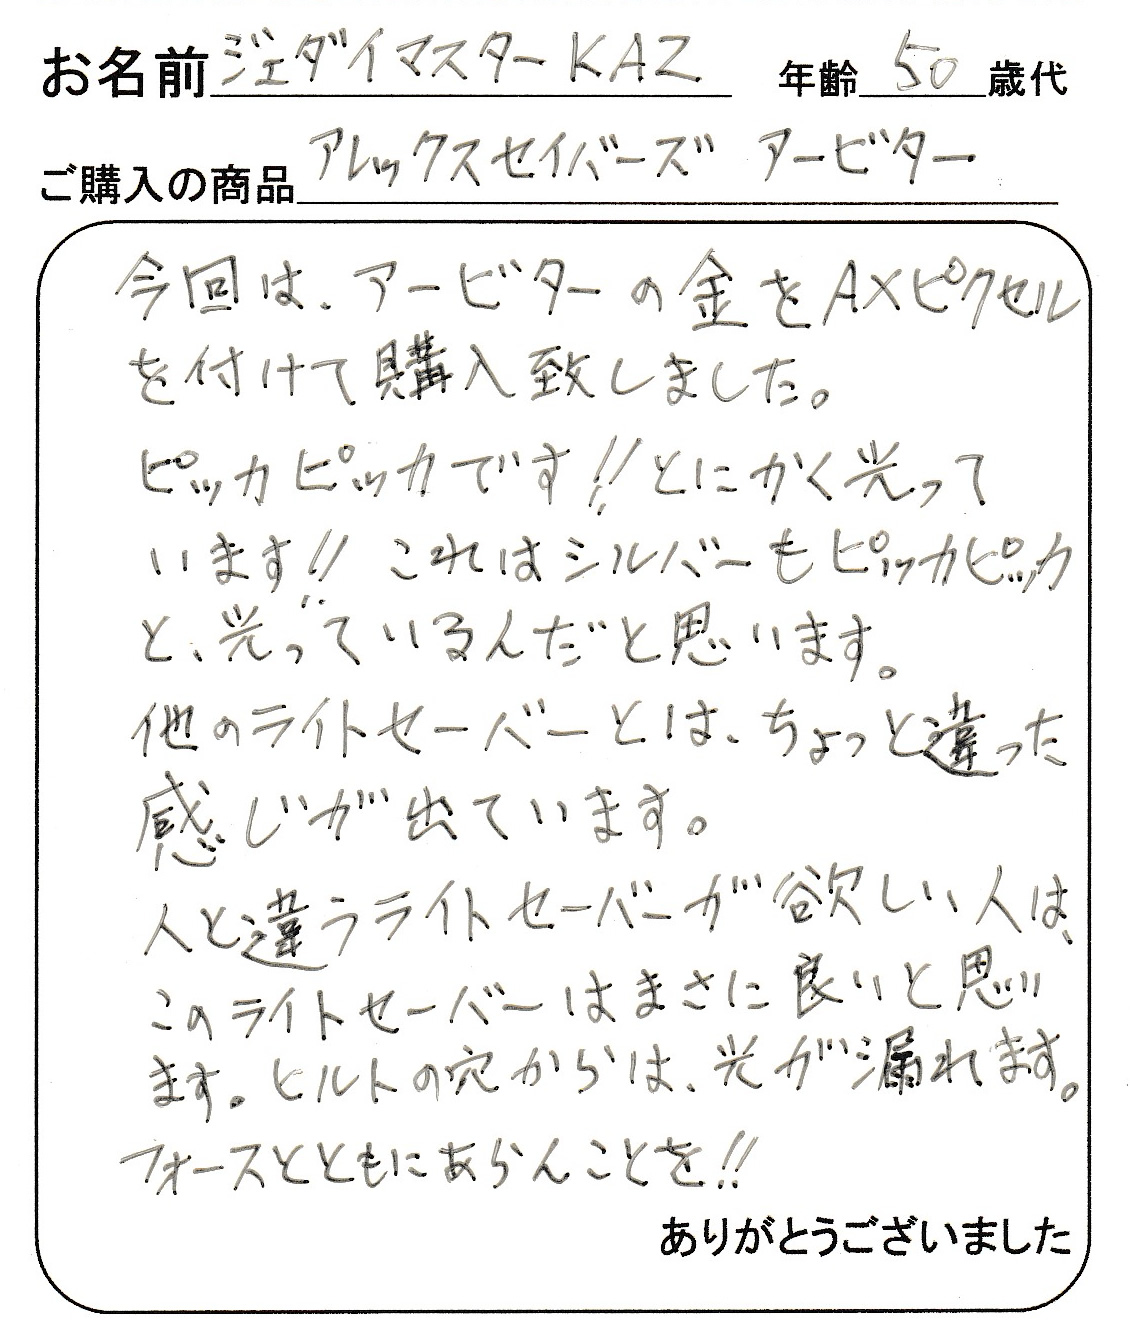 お名前 ジェダイマスターKAZ 年齢 50 歳代
ご購入の商品 アレックスセイバーズ アービター
今回は、アービターの金をAXピクセル
を付けて購入致しました。
ピッカピッカです!!とにかく光って
います!! これはシルバーもピッカピッカ
と、光っているんだと思います。
他のライトセーバーとは、ちょっと違った
感じが出ています。
人と違うライトセーバーが欲しい人は、
このライトセーバーはまさに良いと思い
ます。ヒルトの穴からは、光が漏れます。
フォースとともにあらんことを!!
ありがとうございました